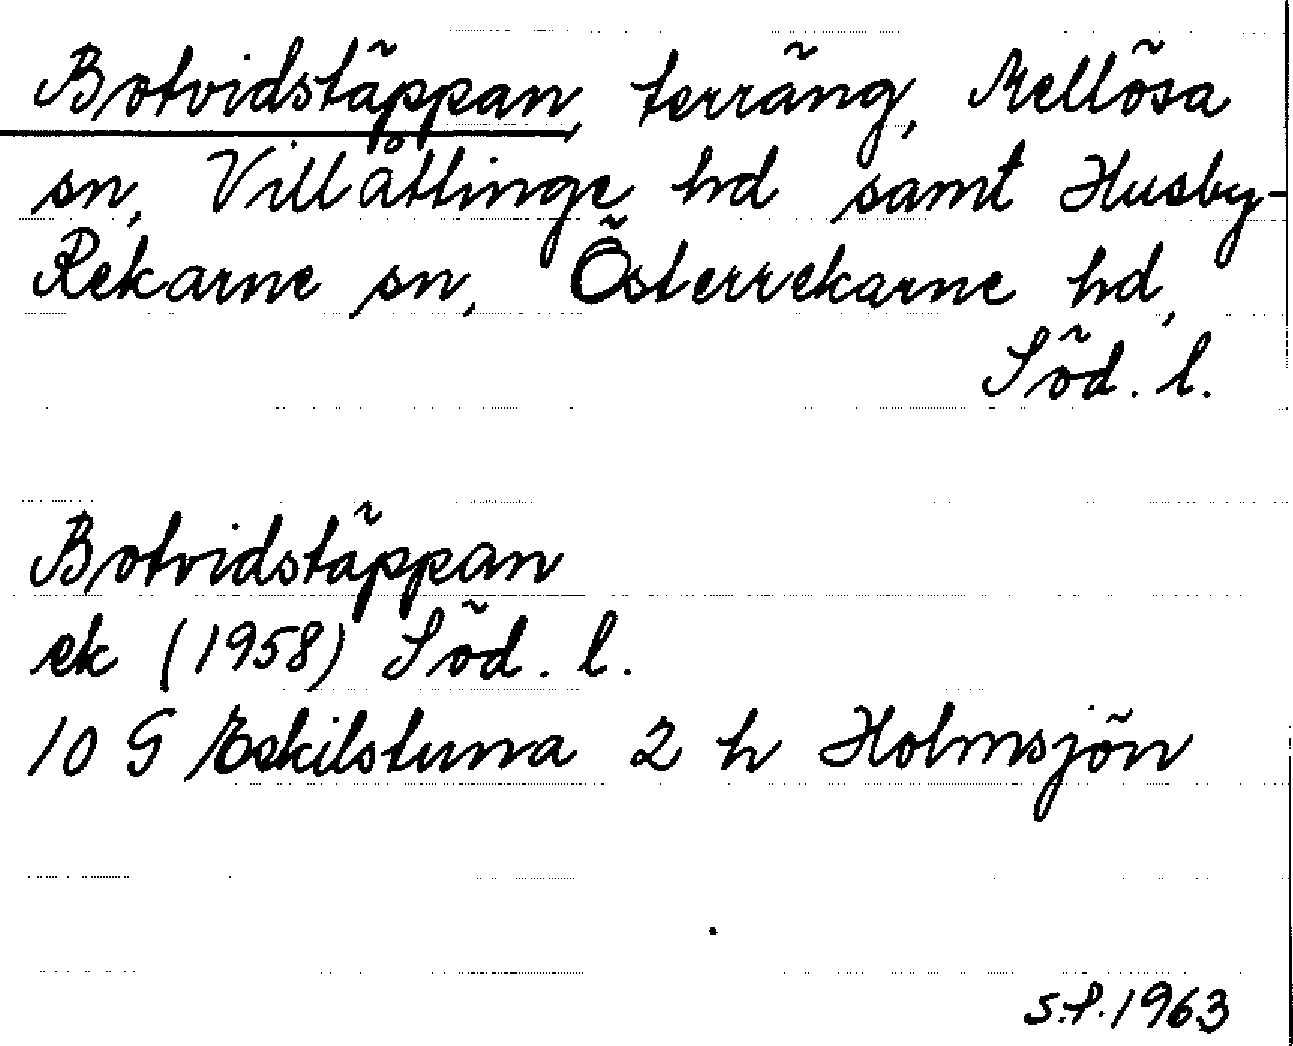 Botvidstäppan, terräng, Mellösa
sn, Villåttinge hd samt Husby-
Rekarne sn, Österrekarne hd,
Söd. l.
Botvidstäppan
ek (1958) Söd. l.
10 G Eskilstuna 2 h Holmsjön
S.P. 1963